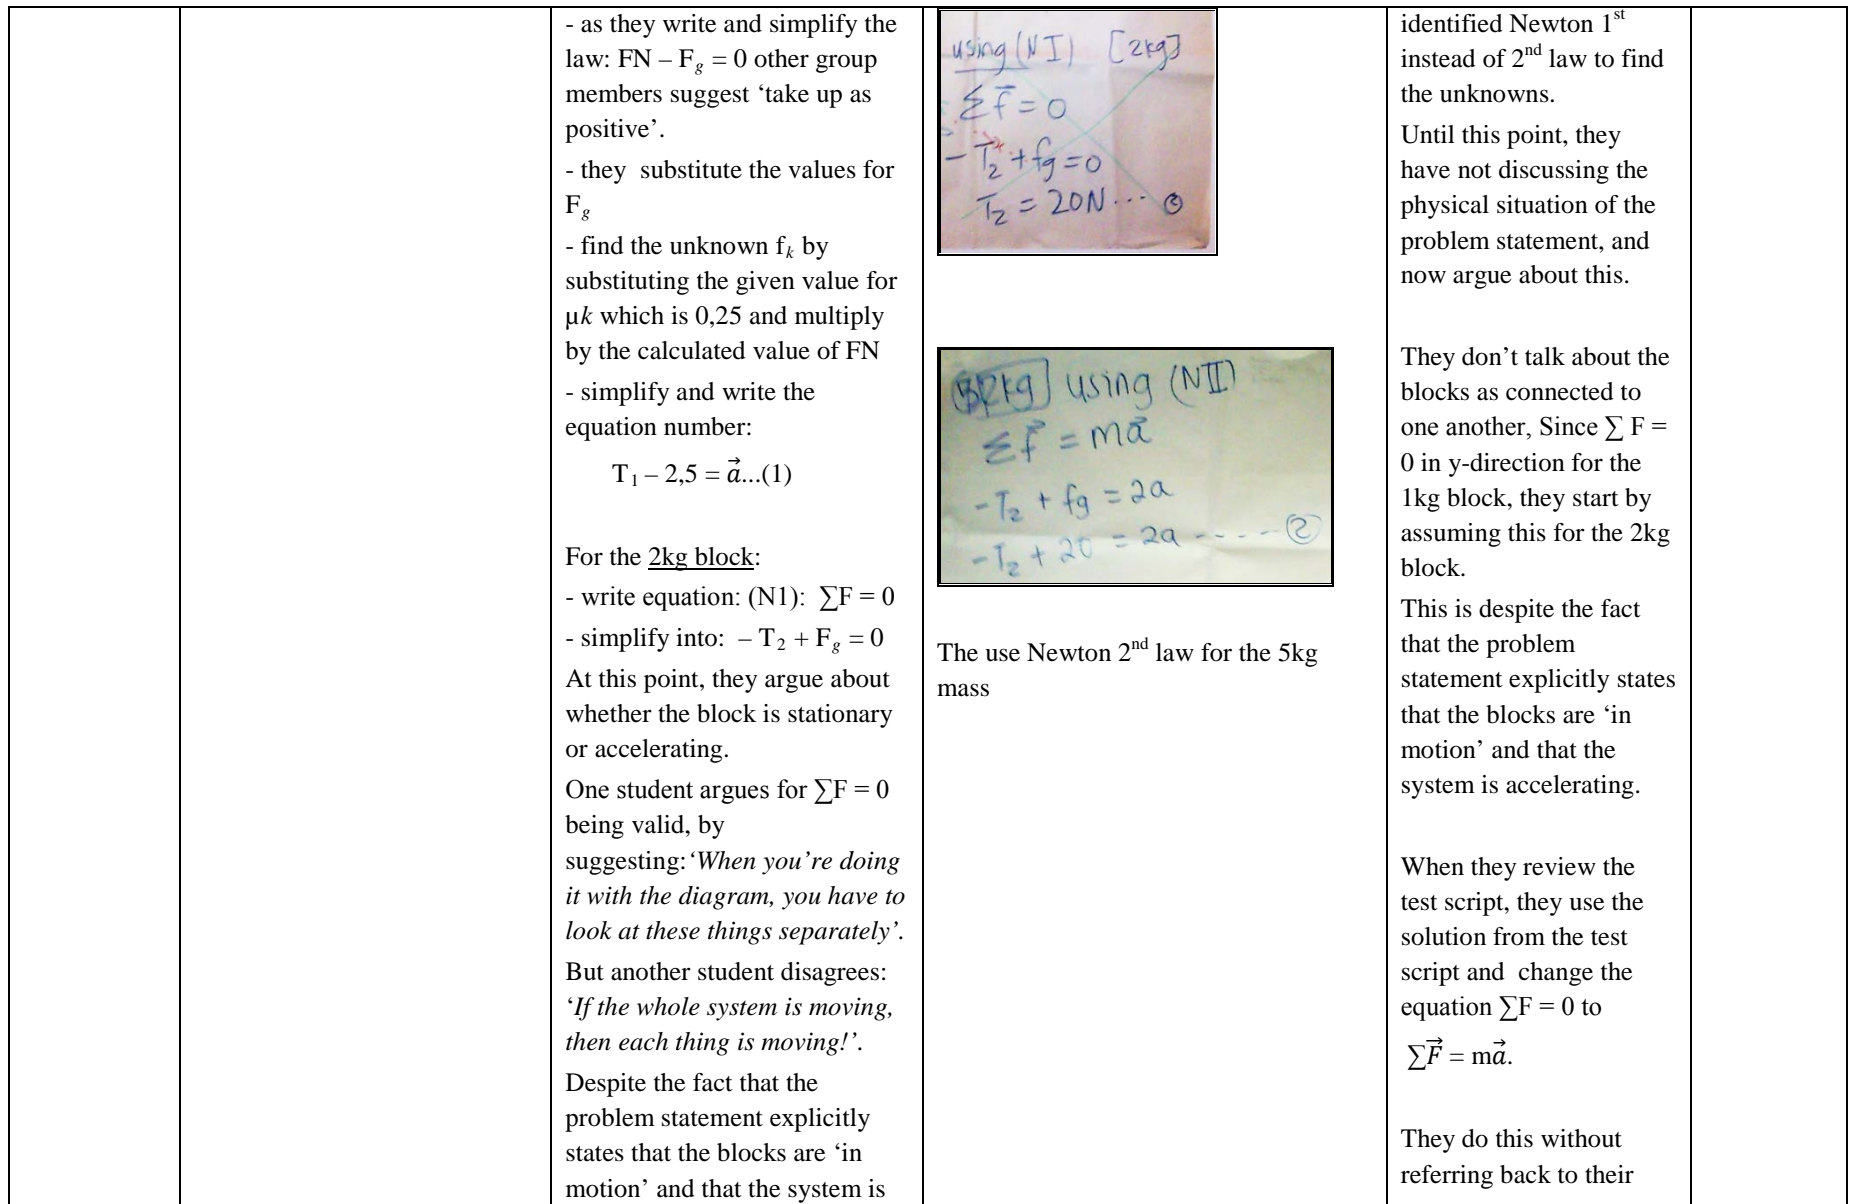 - as they write and simplify the
law: FN – F𝑔 = 0 other group
members suggest ‘take up as
positive’.
- they substitute the values for
F𝑔
- find the unknown f𝑘 by
substituting the given value for
µ𝑘 which is 0,25 and multiply
by the calculated value of FN
- simplify and write the
equation number:
T₁ – 2,5 = a⃗...(1)
For the 2kg block:
- write equation: (N1): ∑F = 0
- simplify into: – T₂ + F𝑔 = 0
At this point, they argue about
whether the block is stationary
or accelerating.
One student argues for ∑F = 0
being valid, by
suggesting:‘When you’re doing
it with the diagram, you have to
look at these things separately’.
But another student disagrees:
‘If the whole system is moving,
then each thing is moving!’.
Despite the fact that the
problem statement explicitly
states that the blocks are ‘in
motion’ and that the system is
using (N I) [2kg]
∑f⃗ = 0
- T₂ + fg = 0
T₂ = 20N ...
2kg using (NII)
∑f⃗ = ma⃗
-T₂ + fg = 2a
-T₂ + 20 = 2a ----- ②
The use Newton 2ⁿᵈ law for the 5kg
mass
identified Newton 1ˢᵗ
instead of 2ⁿᵈ law to find
the unknowns.
Until this point, they
have not discussing the
physical situation of the
problem statement, and
now argue about this.
They don’t talk about the
blocks as connected to
one another, Since ∑ F =
0 in y-direction for the
1kg block, they start by
assuming this for the 2kg
block.
This is despite the fact
that the problem
statement explicitly states
that the blocks are ‘in
motion’ and that the
system is accelerating.
When they review the
test script, they use the
solution from the test
script and change the
equation ∑F = 0 to
∑F⃗ = ma⃗.
They do this without
referring back to their